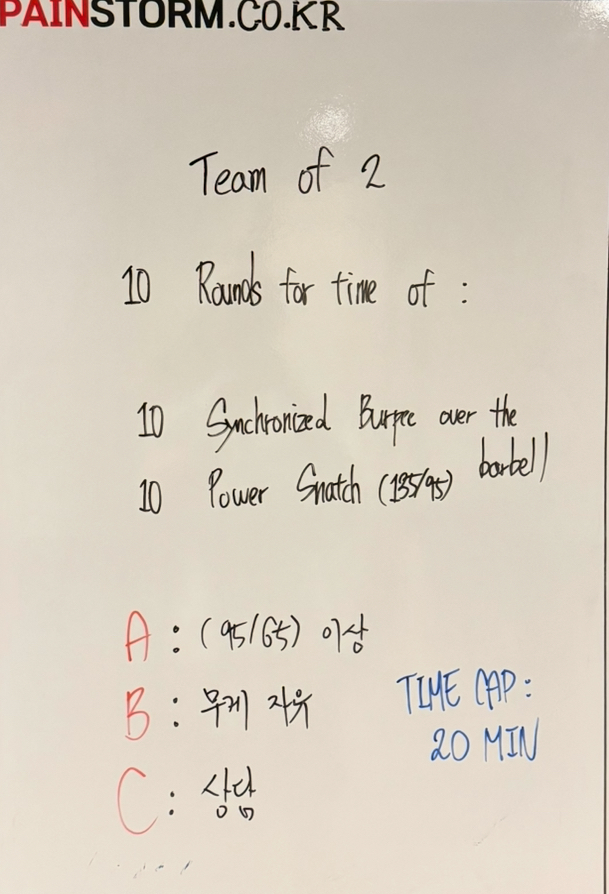 PAINSTORM.CO.KR
Team of 2
10 Rounds for time of :
10 Synchronized Burpee over the barbell
10 Power Snatch (135/95)
A : (95/65) 이상
B : 무게 자유
C : 상담
TIME CAP :
20 MIN